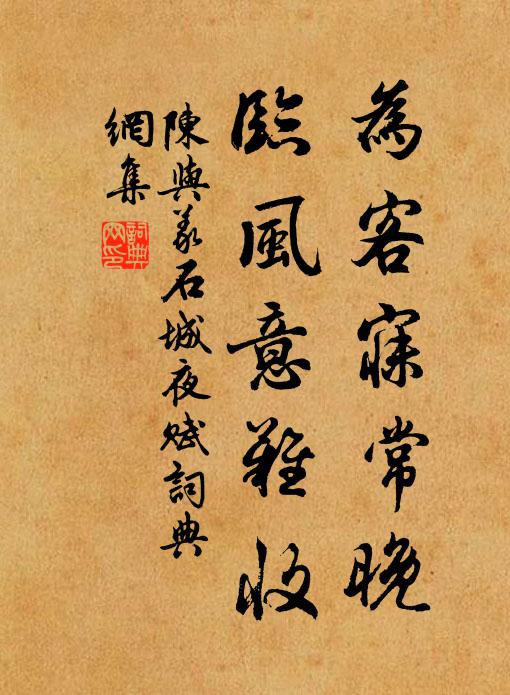 為客寐常晚
臨風意難收
陳與義石城夜賦詞典
網集
詞典網印